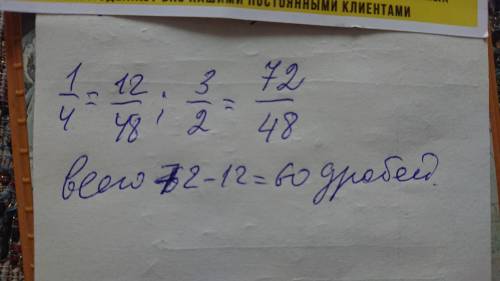 НАШИМИ ПОСТОЯННЫМИ КЛИЕНТАМИ
1/4 = 12/48 ; 3/2 = 72/48
всего 72-12=60 дробей.